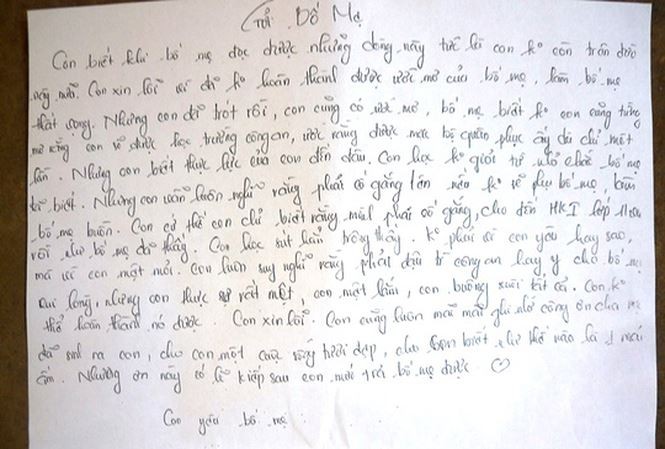 Gửi Bố Mẹ
Con biết khi bố mẹ đọc được những dòng này tức là con ko còn trên đời
này nữa. Con xin lỗi vì đã ko hoàn thành được ước mơ của bố mẹ, làm bố mẹ
thất vọng. Nhưng con đã trót rồi, con cũng có ước mơ, bố mẹ biết ko con cũng từng
mơ rằng con sẽ được học trường công an, ước rằng được mặc bộ quân phục ấy dù chỉ một
lần. Nhưng con biết thực lực của con đến đâu. Con học ko giỏi từ nhỏ chắc bố mẹ
đã biết. Nhưng con vẫn luôn nghĩ rằng phải cố gắng lên nếu ko sẽ phụ bố mẹ, làm
bố mẹ buồn. Con cứ thế con chỉ biết rằng mình phải cố gắng, cho đến HKI lớp 11
rồi như bố mẹ đã thấy. Con học sút hẳn trông thấy. Ko phải vì con yêu hay sao,
mà vì con mệt mỏi. Con luôn suy nghĩ rằng phải đậu trường công an hay y cho bố mẹ
vui lòng, nhưng con thực sự rất mệt, con mệt lắm, con buông xuôi tất cả. Con ko
thể hoàn thành nó được. Con xin lỗi. Con cũng luôn mãi mãi ghi nhớ công ơn cha mẹ
đã sinh ra con, cho con một cuộc sống tươi đẹp, cho con biết như thế nào là 1 mái
ấm. Nhưng ơn này có lẽ kiếp sau con mới trả bố mẹ được. ♡
Con yêu bố mẹ